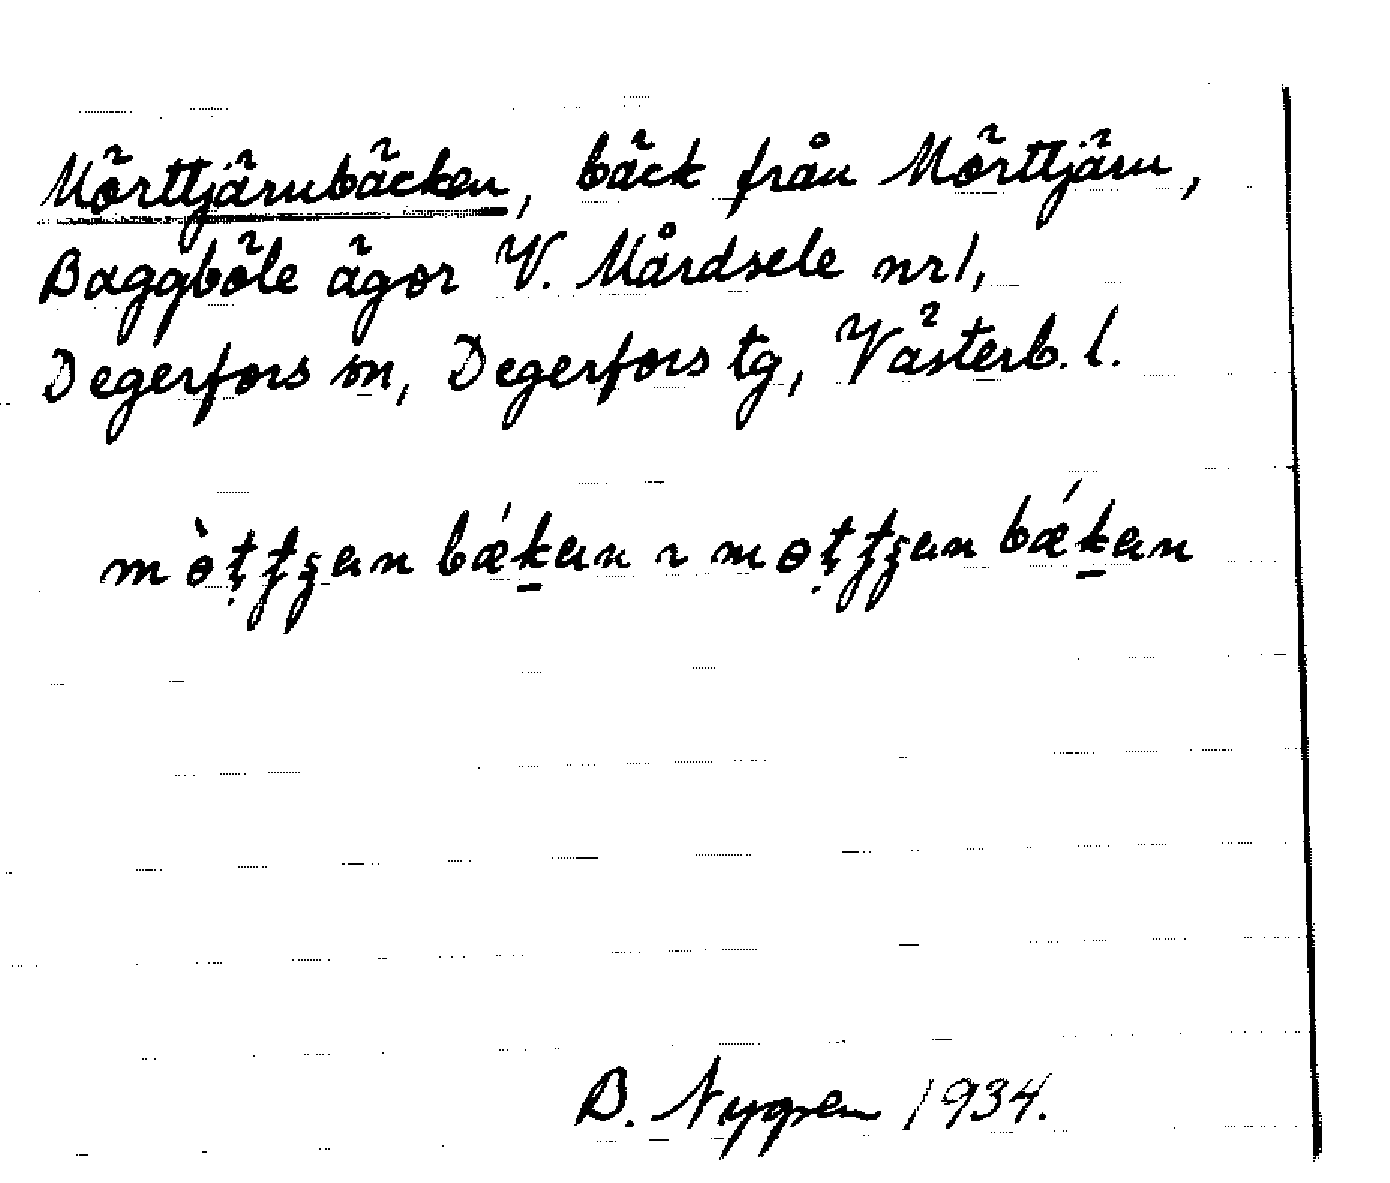 Mörttjärnbäcken, bäck från Mörttjärn,
Baggböle ägor V. Mårdsele nr 1,
Degerfors sn, Degerfors tg, Västerb. l.
B. Nygren 1934.